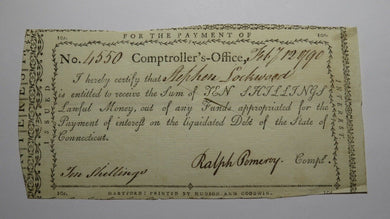 10s. FOR THE PAYMENT OF 10s.
No. 4550 Comptroller's-Office, Feby 12 1790
I hereby certify that Stephen Lockwood
is entitled to receive the Sum of TEN SHILLINGS
Lawful Money, out of any Funds appropriated for the
Payment of interest on the liquidated Debt of the State of
Connecticut.
Ralph Pomeroy Compt.
Ten Shillings
10s. HARTFORD: PRINTED BY HUDSON AND GOODWIN. 10s.